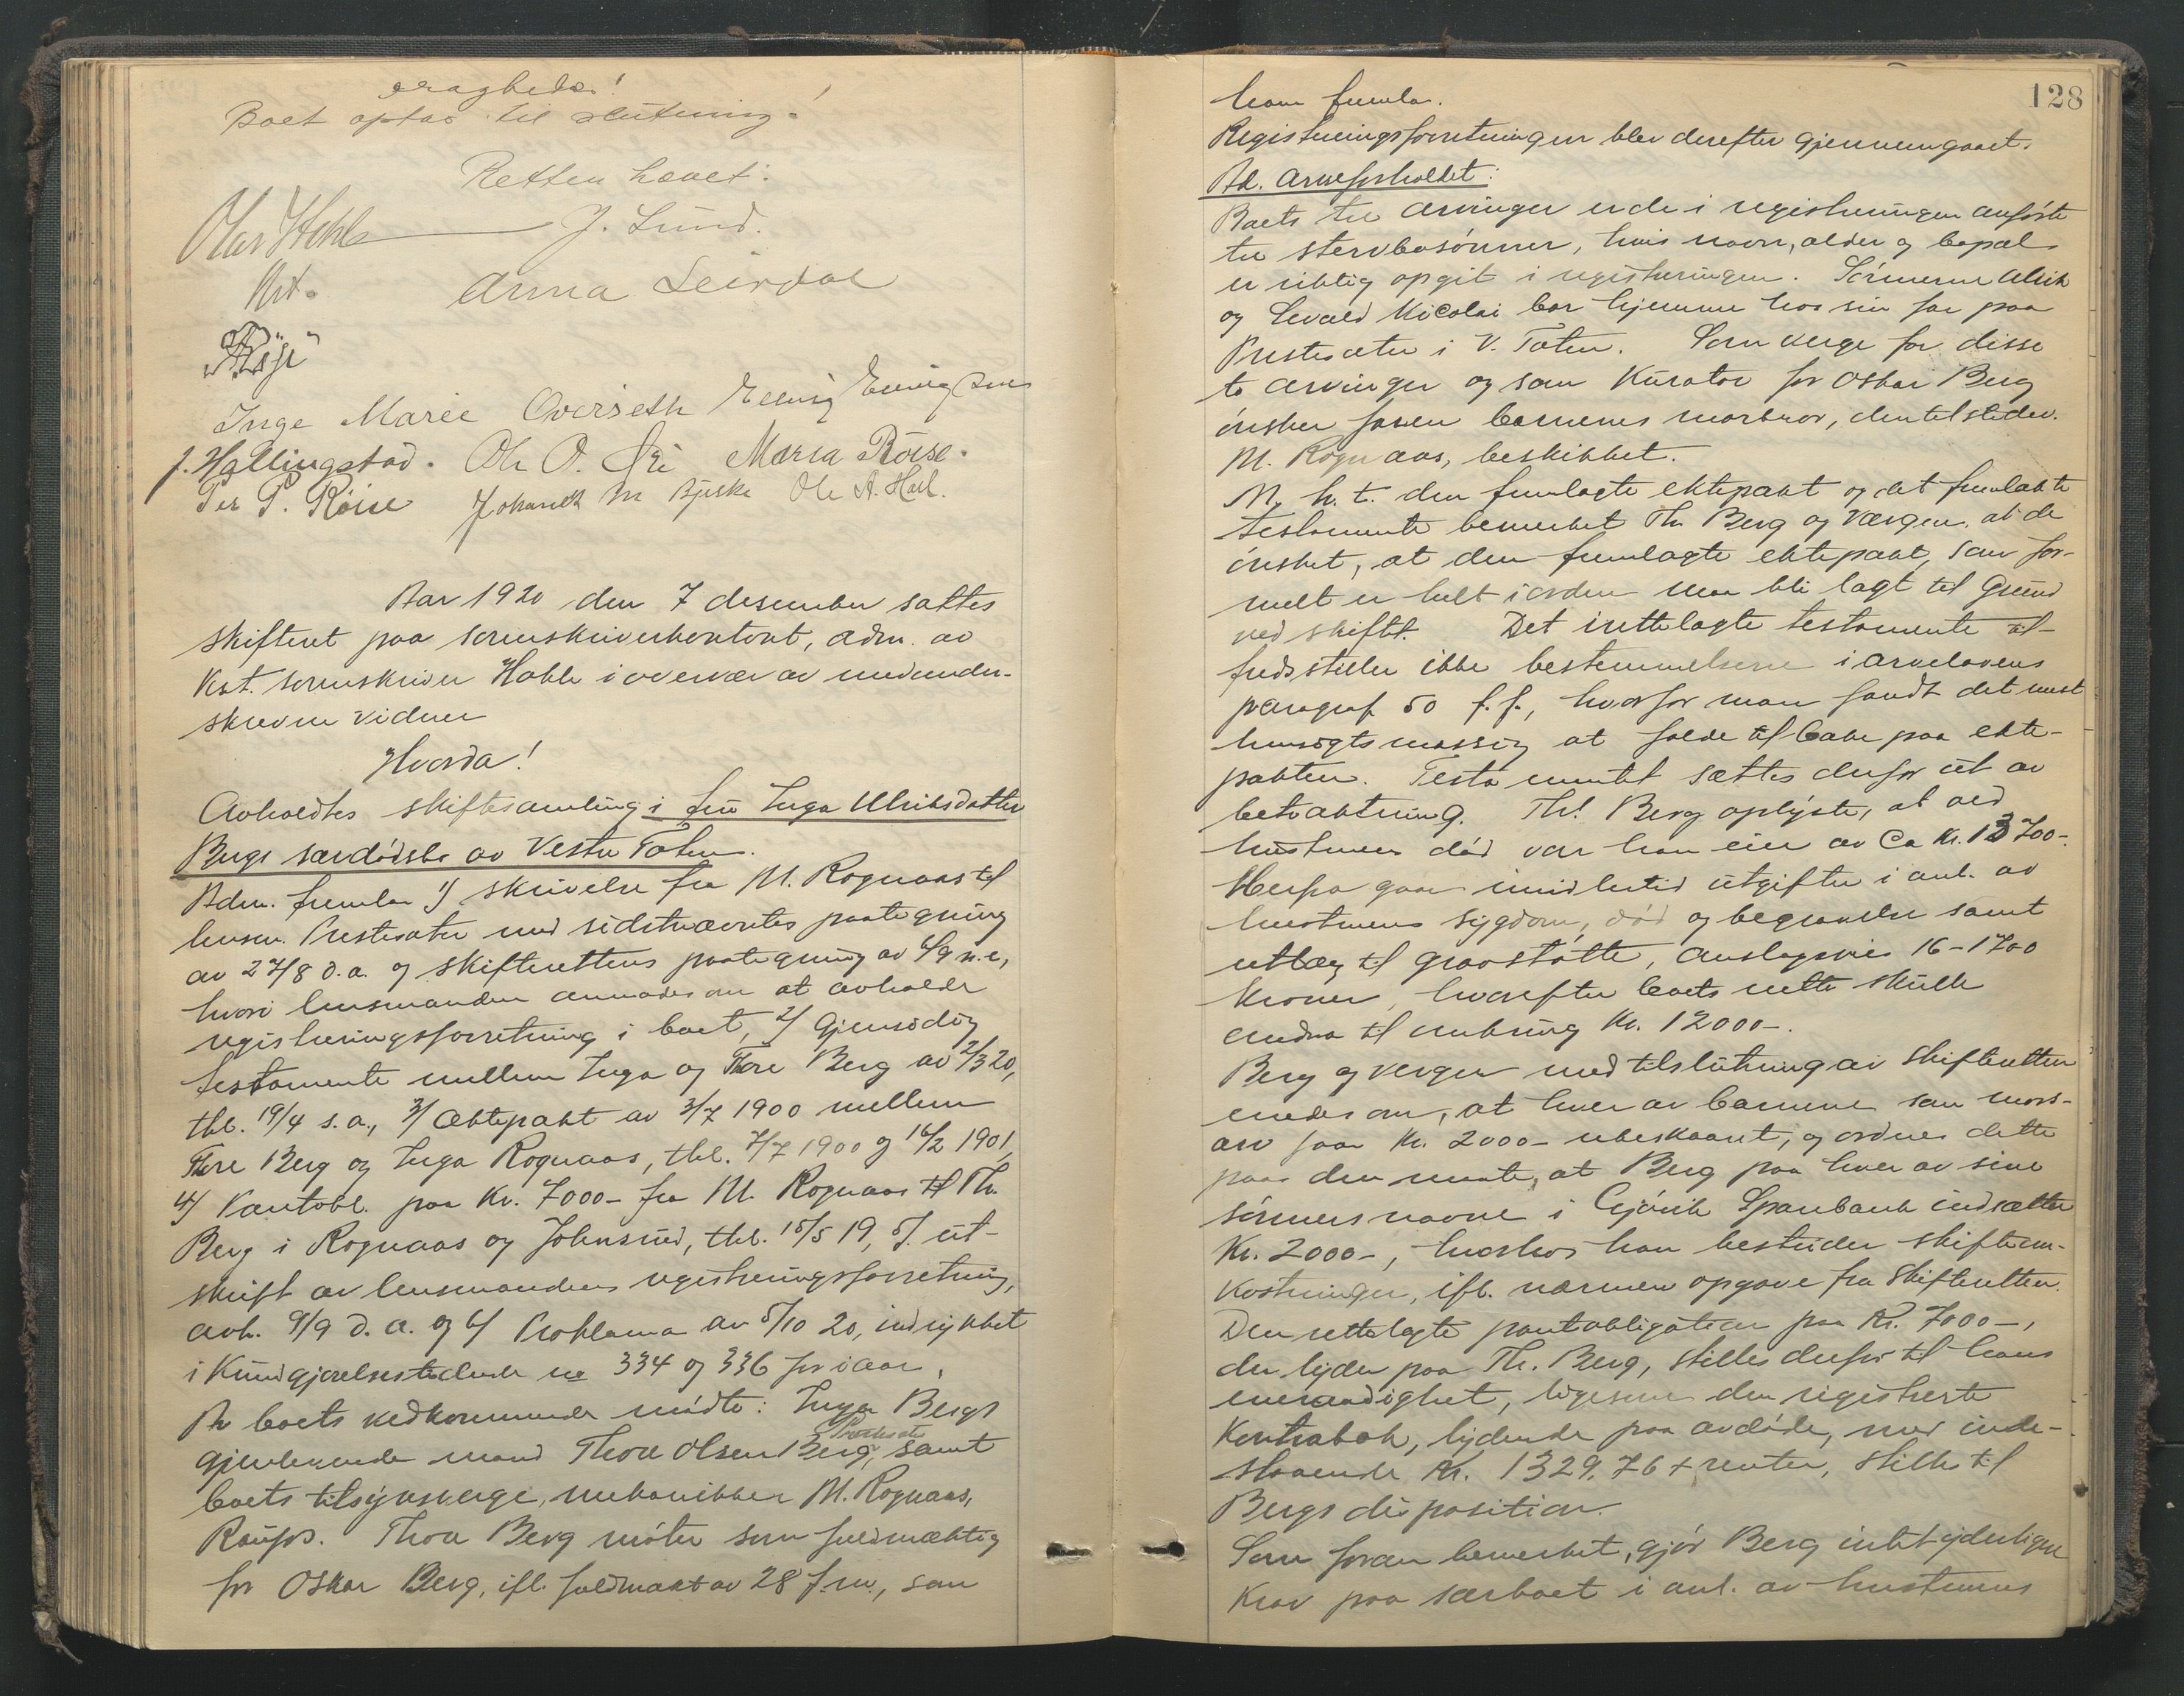 Boet optas til slutning!
Retten hævet.
J. Lund.
Kst.
Anna Leirdal
Inge Marie Overseth
J. Hallingstad. Ole O. Maria Röise.
Per P. Röise Johannes M Ole A. Hol.
Aar 1920 den 7 desember sattes
skifteret paa sorenskriverkontoret, adm. av
Kst. sorenskriver i overvær av medunder-
skrevne vidner
Hvorda!
Avholdtes skiftesamling i fru Inga Ulriksdatter
Bergs særdødsbo av Vestre Toten.
Adm. fremla 1/ skrivelse fra M. Rognaas til
lensm. Prestesæter med sidstnævntes paategning
av 27/8 d.a. og skifterettens paategning av 6/9 n.e,
hvori lensmanden anmodes om at avholde
registreringsforretning i boet, 2/ Gjensidig
testamente mellem Inga og Thore Berg av 2/3 20,
tbl. 19/4 s.a., 3/ Ektepakt av 3/7 1900 mellem
Thore Berg og Inga Rognaas, tbl. 7/7 1900 og 16/2 1901,
4/ Pantobl. paa Kr. 7000- fra M. Rognaas til Th.
Berg i Rognaas og Johnsrud, tbl. 15/5 19, 5/ ut-
skrift av lensmandens registreringsforretning,
avh. 9/9 d.a. og 6/ Proklama av 5/10 20, indrykket
i Kundgjørelsestidende no 334 og 336 for iaar.
Av boets vedkommende mødte: Inga Bergs
gjenlevende mand Thore Olsen Berg, samt
boets tilsynsverge, mekaniker M. Rognaas,
Raufos. Thore Berg møter som fuldmægtig
for Oskar Berg, ifl. fuldmakt av 28 f.m., som
128
han fremla.
Registreringsforretningen blev derefter gjennemgaaet.
Ad. arveforholdet:
Boets tre arvinger er de i registreringen anførte
tre stervbosønner, hvis navn, alder og bopæl
er riktig opgit i registreringen. Sønnerne Ulrik
og Sevald Nicolai bor hjemme hos sin far paa
Prestesæter i V. Toten. Som verge for disse
to arvinger og som Kurator for Oskar Berg
ønsker faren barnenes morbror, den tilstedev.
M. Rognaas, beskikket.
M.h.t. den fremlagte ektepakt og det fremlakte
testamente bemerket Th. Berg og Værgen, at de
ønsket, at den fremlagte ektepakt, som for-
melt er helt i orden maa bli lagt til Grund
ved skiftet. Det irettelagte testamente til-
fredsstiller ikke bestemmelserne i arvelovens
paragraf 50 f.f., hvorfor man fandt det mest
hensigtsmæssig at falde tilbake paa ekte-
pakten. Testamentet sættes derfor ut av
betraktning. Th. Berg oplyste, at ved
hustruens død var han eier av Ca Kr. 13700-.
Herfra gaar imidlertid utgifter i anl. av
hustruens sygdom, død og begravelse samt
utlæg til gravstøtte, anslagsvis 16-1700
kroner, hvorefter boets netto skulde
andra til omkring Kr. 12000-.
Berg og vergen med tilslutning av skifteretten
enedes om, at hver av barnene som mors-
arv faar Kr. 2000- ubeskaaret, og ordnes dette
paa den maate, at Berg paa hver av sine
sønners navne i Gjøvik Sparebank indsætter
Kr. 2000-, hvorhos han bestrider skifteom-
kostninger, ifl. nærmere opgave fra skifteretten.
Den rettelagte pantobligation paa Kr. 7000-,
der lyder paa Th. Berg, stilles derfor til hans
eneraadighet, ligesom den registrerte
Kontrabok, lydende paa avdøde, med inde-
staaende Kr. 1329,76 + renter, stilles til
Bergs disposition.
Som foran bemerket, gjør Berg intet yderligere
krav paa særboet i anl. av hustruens